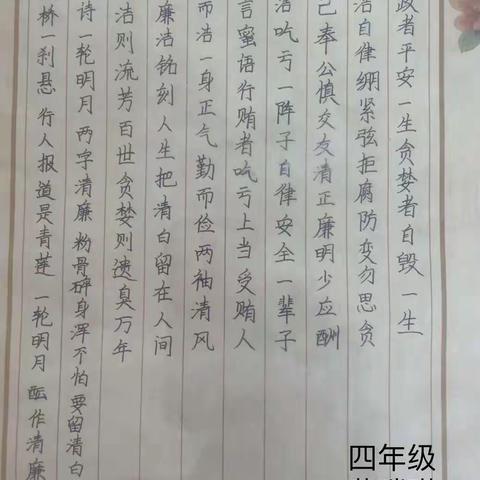 政者平安一生贪婪者自毁一生
洁自律绷紧弦拒腐防变勿思贪
己奉公慎交友清正廉明少应酬
洁吃亏一阵子自律安全一辈子
言蜜语行贿者吃亏上当受贿人
而洁一身正气勤而俭两袖清风
廉洁铭刻人生把清白留在人间
洁则流芳百世贪婪则遗臭万年
诗一轮明月两字清廉粉骨碎身浑不怕要留清白
桥一刹悬行人报道是青莲一轮明月酝作清廉
四年级